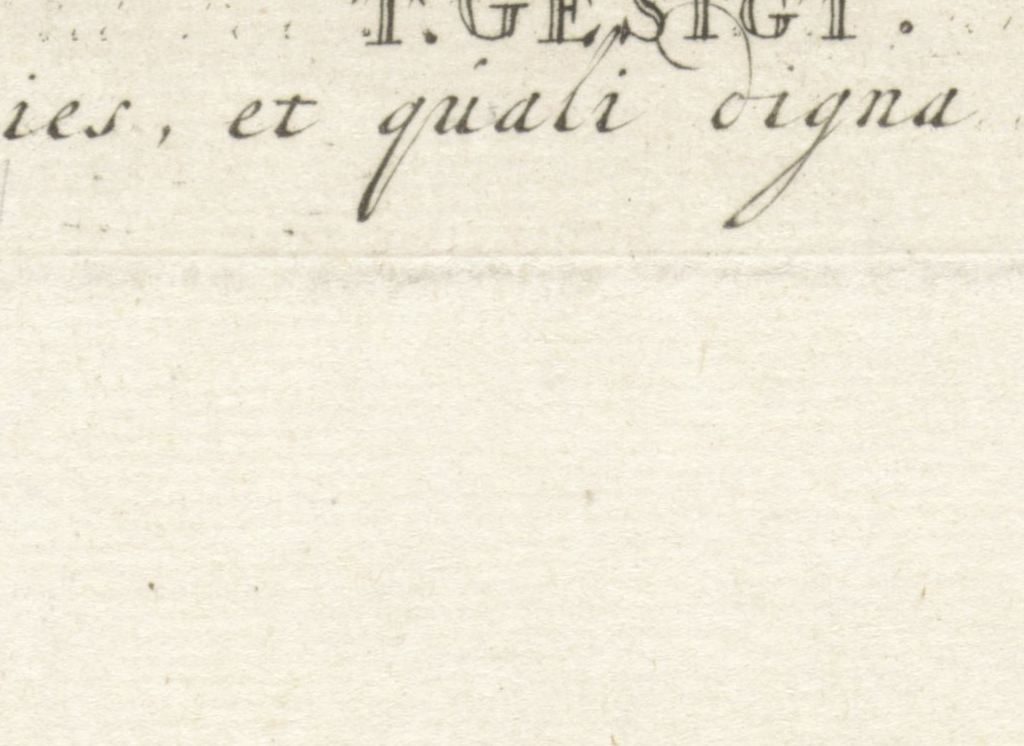 T. GESIGT.
ies, et quali digna